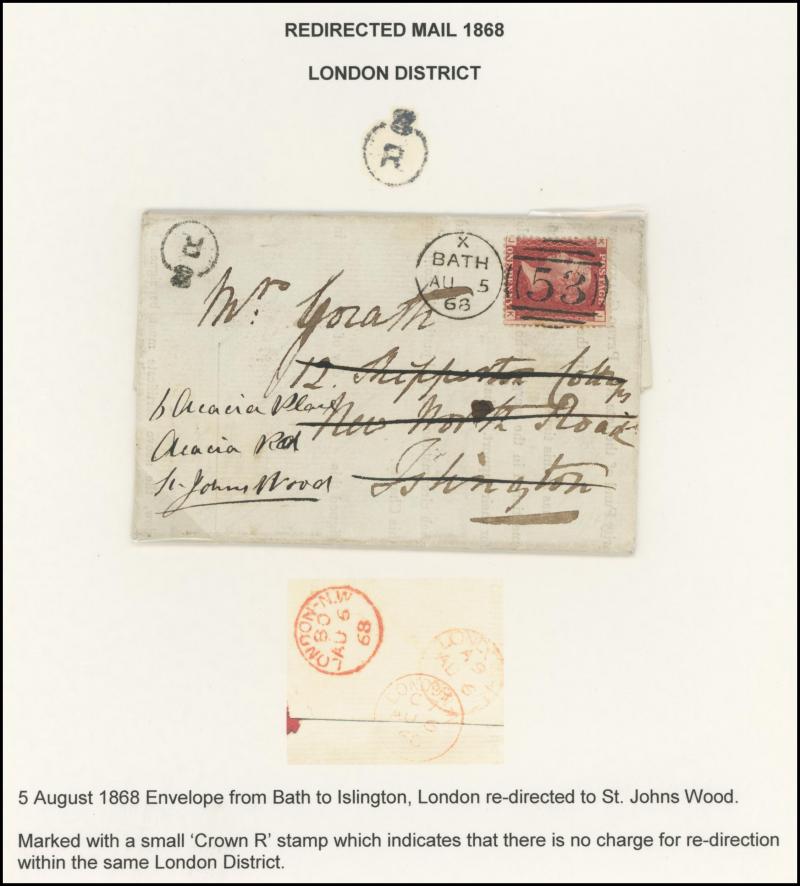 REDIRECTED MAIL 1868
LONDON DISTRICT
R
R
X
BATH
AU 5
68
53
Mrs. Gorath
12. Shepperton Cottgs
New North Road
Islington
6 Acacia Place
Acacia Rd
St Johns Wood
LONDON-N.W
80
AU 6
68
LOND
A9
AU 6
LONDON
C7
AU 6
68
5 August 1868 Envelope from Bath to Islington, London re-directed to St. Johns Wood.
Marked with a small ‘Crown R’ stamp which indicates that there is no charge for re-direction
within the same London District.